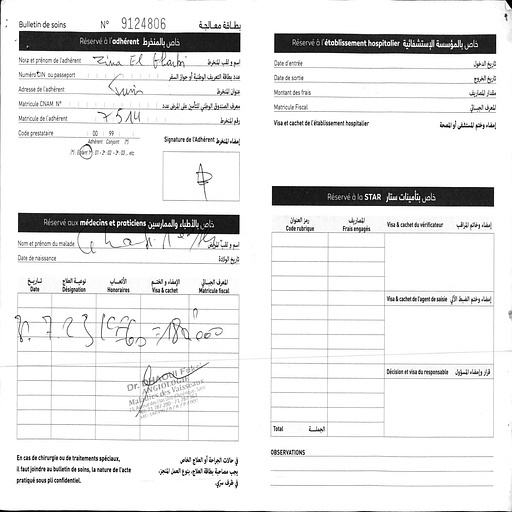 Bulletin de soins N° 9124806 بطاقة معالجة
Réservé à l'adhérent خاص بالمنخرط
Nom et prénom de l'adhérent Zina El اسم و لقب المنخرط
Numéro CIN ou passeport عدد بطاقة التعريف الوطنية أو جواز السفر
Adresse de l'adhérent Tunis عنوان المنخرط
Matricule CNAM N° معرف الصندوق الوطني للتأمين على المرض عدد
Matricule de l'adhérent 7514 رقم المنخرط
Code prestataire 00 99
Adhérent Conjoint (*)
(*) Enfant : 01 - 02 - 03 ... etc
Signature de l'Adhérent إمضاء المنخرط
Réservé aux médecins et praticiens خاص بالأطباء والممارسين
Nom et prénom du malade اسم و لقب المريض
Date de naissance تاريخ الولادة
تاريخ نوعية العلاج الأتعاب الإمضاء و الختم المعرف الجبائي
Date Désignation Honoraires Visa & cachet Matricule fiscal
7.23 = 180,000
Dr.
ANGIOLOGIE
Maladies des Vaisseaux
En cas de chirurgie ou de traitements spéciaux,
il faut joindre au bulletin de soins, la nature de l'acte
pratiqué sous pli confidentiel.
في حالات الجراحة أو العلاج الخاص
يجب مصاحبة بطاقة العلاج، بنوع العمل المنجز،
في ظرف سري.
Réservé à l'établissement hospitalier خاص بالمؤسسة الإستشفائية
Date d'entrée تاريخ الدخول
Date de sortie تاريخ الخروج
Montant des frais مقدار المصاريف
Matricule Fiscal المعرف الجبائي
Visa et cachet de l'établissement hospitalier إمضاء وختم المستشفى أو المصحة
Réservé à la STAR خاص بتأمينات ستار
رمز العنوان المصاريف
Code rubrique Frais engagés
Visa & cachet du vérificateur إمضاء وختم المراقب
Visa & cachet de l'agent de saisie إمضاء وختم الضبط الآلي
Décision et visa du responsable قرار وإمضاء المسؤول
Total الجملة
OBSERVATIONS